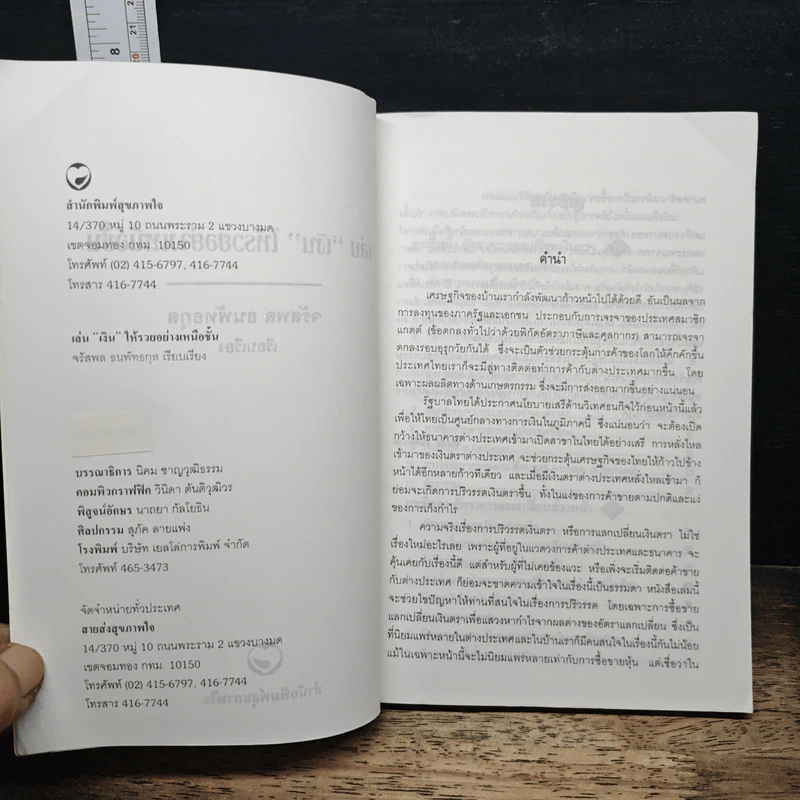 สำนักพิมพ์สุขภาพใจ
14/370 หมู่ 10 ถนนพระราม 2 แขวงบางมด
เขตจอมทอง กทม. 10150
โทรศัพท์ (02) 415-6797, 416-7744
โทรสาร 416-7744
เล่น "เงิน" ให้รวยอย่างเหนือชั้น
จรัสพล ธนพัทธกุล เรียบเรียง
บรรณาธิการ นิคม ชาญวุฒิธรรม
คอมพิวกราฟฟิค วินิดา ตันติวุฒิวร
พิสูจน์อักษร นาถยา กัลโยธิน
ศิลปกรรม สุภัค ลายแพ่ง
โรงพิมพ์ บริษัท เยลโล่การพิมพ์ จำกัด
โทรศัพท์ 465-3473
จัดจำหน่ายทั่วประเทศ
สายส่งสุขภาพใจ
14/370 หมู่ 10 ถนนพระราม 2 แขวงบางมด
เขตจอมทอง กทม. 10150
โทรศัพท์ (02) 415-6797, 416-7744
โทรสาร 416-7744
คำนำ
เศรษฐกิจของบ้านเรากำลังพัฒนาก้าวหน้าไปได้ด้วยดี อันเป็นผลจาก
การลงทุนของภาครัฐและเอกชน ประกอบกับการเจรจาของประเทศสมาชิก
แกตต์ (ข้อตกลงทั่วไปว่าด้วยพิกัดอัตราภาษีและศุลกากร) สามารถเจรจา
ตกลงรอบอุรุกวัยกันได้ ซึ่งจะเป็นตัวช่วยกระตุ้นการค้าของโลกให้คึกคักขึ้น
ประเทศไทยเราก็จะมีลู่ทางติดต่อทำการค้ากับต่างประเทศมากขึ้น โดย
เฉพาะผลผลิตทางด้านเกษตรกรรม ซึ่งจะมีการส่งออกมากขึ้นอย่างแน่นอน
รัฐบาลไทยได้ประกาศนโยบายเสรีด้านวิเทศธนกิจไว้ก่อนหน้านี้แล้ว
เพื่อให้ไทยเป็นศูนย์กลางทางการเงินในภูมิภาคนี้ ซึ่งแน่นอนว่า จะต้องเปิด
กว้างให้ธนาคารต่างประเทศเข้ามาเปิดสาขาในไทยได้อย่างเสรี การหลั่งไหล
เข้ามาของเงินตราต่างประเทศ จะช่วยกระตุ้นเศรษฐกิจของไทยให้ก้าวไปข้าง
หน้าได้อีกหลายก้าวทีเดียว และเมื่อมีเงินตราต่างประเทศหลั่งไหลเข้ามา ก็
ย่อมจะเกิดการปริวรรตเงินตราขึ้น ทั้งในแง่ของการค้าขายตามปกติและแง่
ของการเก็งกำไร
ความจริงเรื่องการปริวรรตเงินตรา หรือการแลกเปลี่ยนเงินตรา ไม่ใช่
เรื่องใหม่อะไรเลย เพราะผู้ที่อยู่ในแวดวงการค้าต่างประเทศและธนาคาร จะ
คุ้นเคยกับเรื่องนี้ดี แต่สำหรับผู้ที่ไม่เคยข้องแวะ หรือเพิ่งจะเริ่มติดต่อค้าขาย
กับต่างประเทศ ก็ย่อมจะขาดความเข้าใจในเรื่องนี้เป็นธรรมดา หนังสือเล่มนี้
จะช่วยไขปัญหาให้ท่านที่สนใจในเรื่องการปริวรรต โดยเฉพาะการซื้อขาย
แลกเปลี่ยนเงินตราเพื่อแสวงหากำไรจากผลต่างของอัตราแลกเปลี่ยน ซึ่งเป็น
ที่นิยมแพร่หลายในต่างประเทศและในบ้านเราก็มีคนสนใจในเรื่องนี้กันไม่น้อย
แม้ในเฉพาะหน้านี้จะไม่นิยมแพร่หลายเท่ากับการซื้อขายหุ้น แต่เชื่อว่าใน